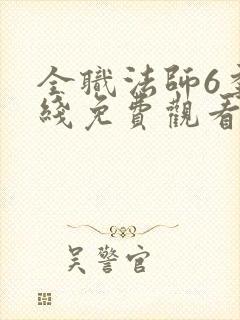 全職法師6季
綫免費觀看
吳警官